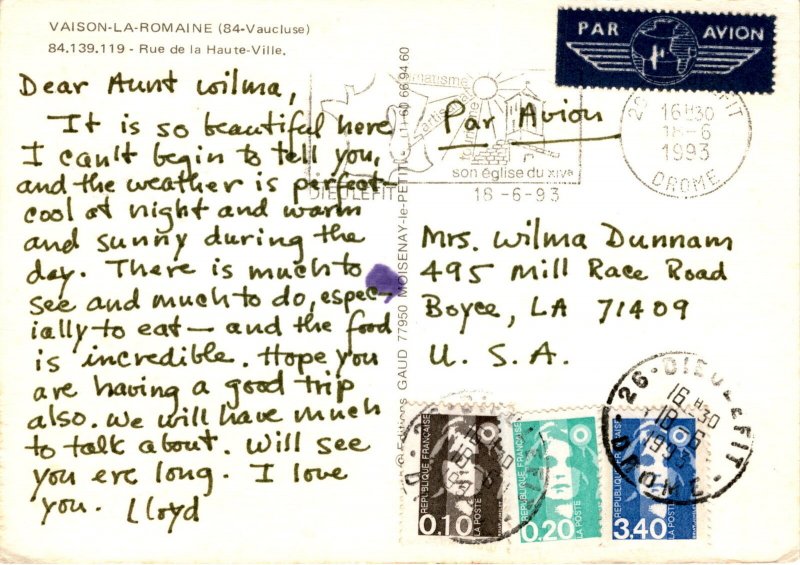 VAISON-LA-ROMAINE (84-Vaucluse)
84.139.119 - Rue de la Haute-Ville.
Dear Aunt Wilma,
It is so beautiful here
I can't begin to tell you,
and the weather is perfect—
cool at night and warm
and sunny during the
day. There is much to
see and much to do, espec-
ially to eat — and the food
is incredible. Hope you
are having a good trip
also. We will have much
to talk about. Will see
you ere long. I love
you. Lloyd
Editions GAUD 77950 MOISENAY-le-PETIT (1) 60 66 94 60
PAR AVION
Par Avion
son église du XIVe
DIEULEFIT
18-6-93
26 DIEULEFIT
16H30
18-6
1993
DROME
Mrs. Wilma Dunnam
495 Mill Race Road
Boyce, LA 71409
U. S. A.
REPUBLIQUE FRANÇAISE
LA POSTE
0.10
REPUBLIQUE FRANÇAISE
LA POSTE
0.20
REPUBLIQUE FRANÇAISE
LA POSTE
3.40
26-DIEULEFIT
16H30
18-6
1993
DROME